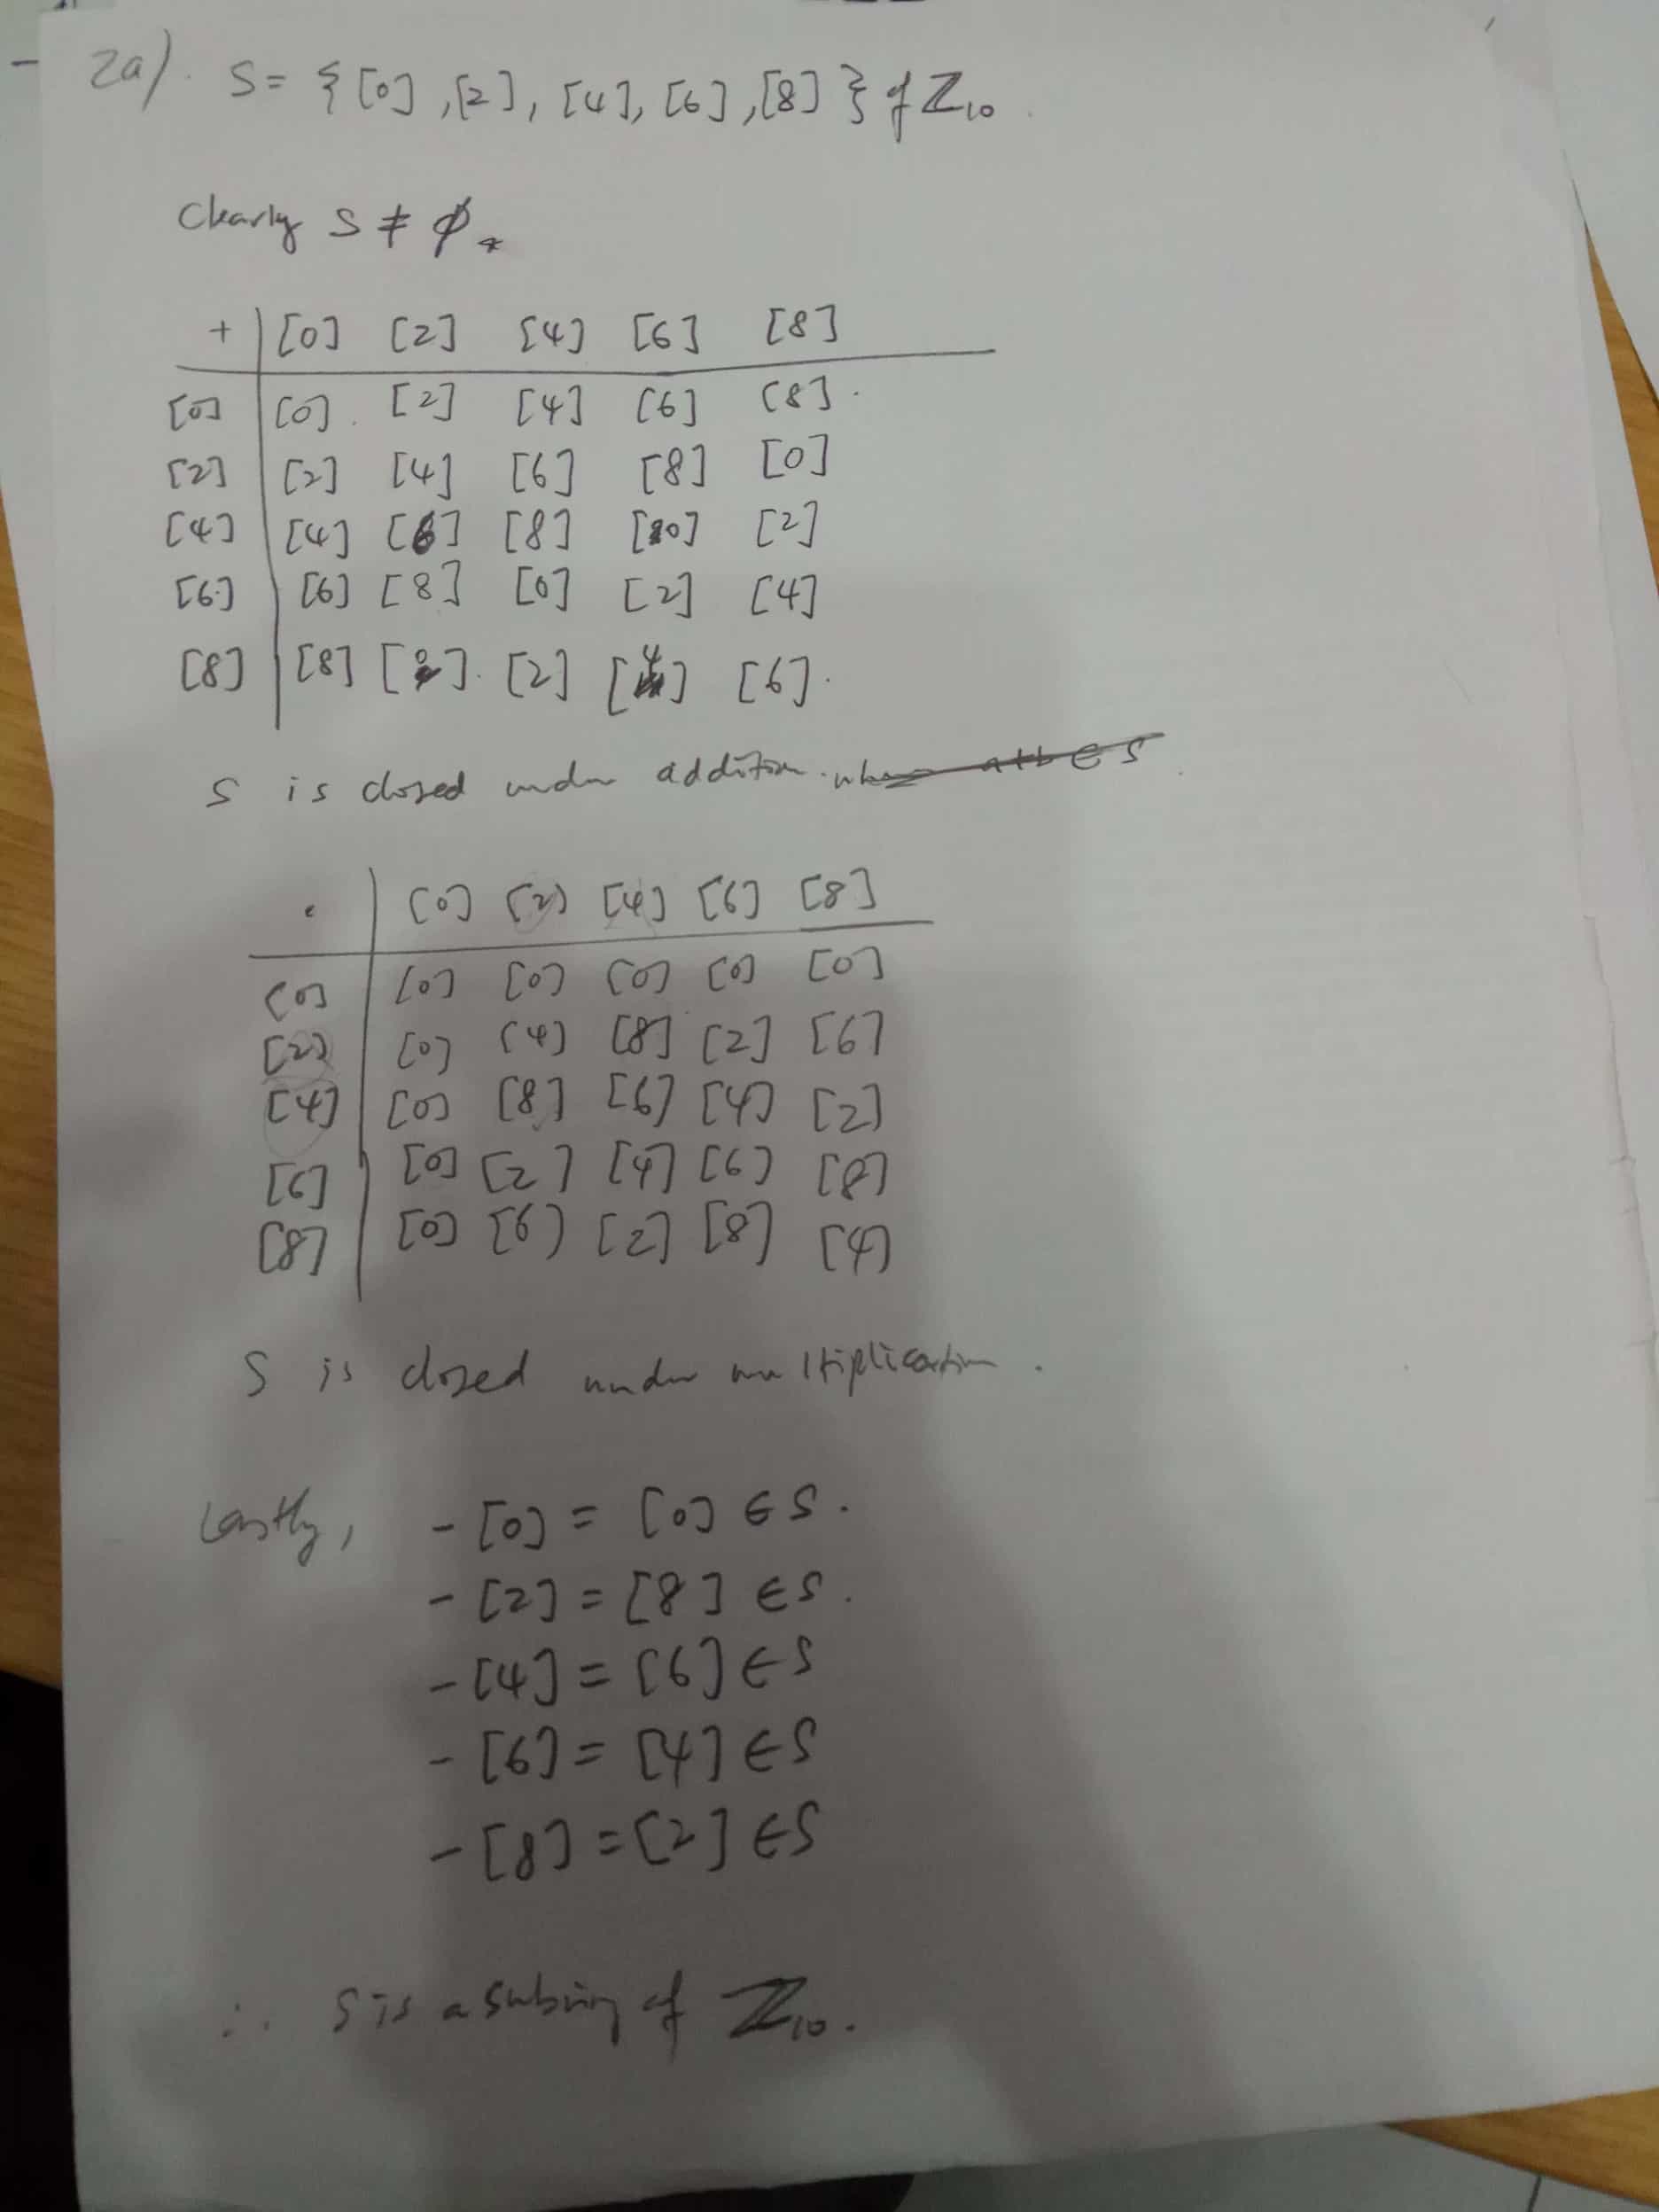 2a). S = {[0], [2], [4], [6], [8]} of ℤ₁₀.
Clearly S ≠ ∅.
+ | [0] [2] [4] [6] [8]
[0] | [0] [2] [4] [6] [8]
[2] | [2] [4] [6] [8] [0]
[4] | [4] [6] [8] [0] [2]
[6] | [6] [8] [0] [2] [4]
[8] | [8] [0] [2] [4] [6]
S is closed under addition. when a+b ∈ S
· | [0] [2] [4] [6] [8]
[0] | [0] [0] [0] [0] [0]
[2] | [0] [4] [8] [2] [6]
[4] | [0] [8] [6] [4] [2]
[6] | [0] [2] [4] [6] [8]
[8] | [0] [6] [2] [8] [4]
S is closed under multiplication.
Lastly, -[0] = [0] ∈ S.
-[2] = [8] ∈ S.
-[4] = [6] ∈ S
-[6] = [4] ∈ S
-[8] = [2] ∈ S
∴ S is a subring of ℤ₁₀.